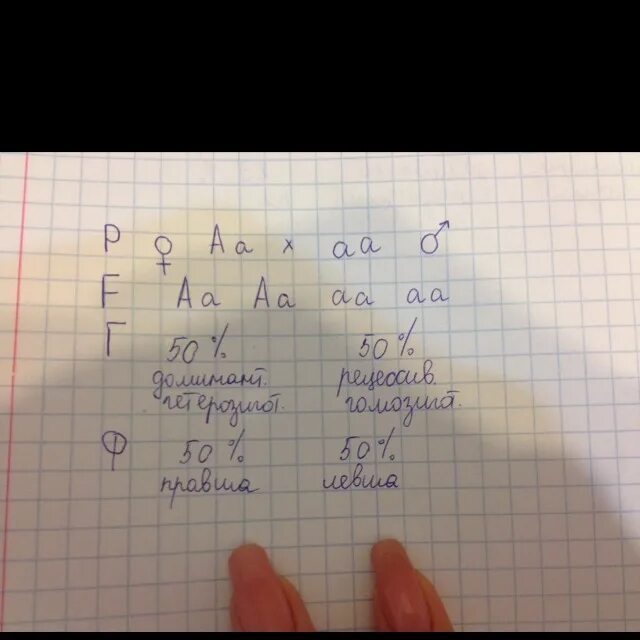 P ♀ Aa x aa ♂
F Aa Aa aa aa
Г 50% 50%
доминант. рецессив.
гетерозигот. гомозигот.
Ф 50% 50%
правша левша